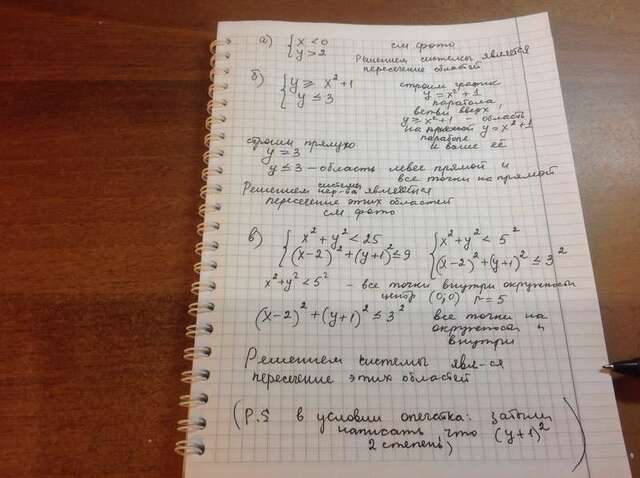 а) { x < 0 см фото
y > 2 Решением системы является
пересечение областей
б) { y ⩾ x² + 1 строим график
y ≤ 3 y = x² + 1
парабола,
ветви вверх,
y ⩾ x² + 1 – область
на прямой y = x² + 1
параболе и выше её
строим прямую
y = 3
y ≤ 3 – область левее прямой и
все точки на прямой
Решением системы нер-ва является
пересечение этих областей
см фото
в) { x² + y² < 25 { x² + y² < 5²
(x-2)² + (y+1)² ≤ 9 (x-2)² + (y+1)² ≤ 3²
x² + y² < 5² – все точки внутри окружности
центр (0;0) r = 5
(x-2)² + (y+1)² ≤ 3² все точки на
окружности и
внутри
Решением системы явл-ся
пересечение этих областей
(P.S в условии опечатка: забыли
написать что (y+1)²
2 степень)